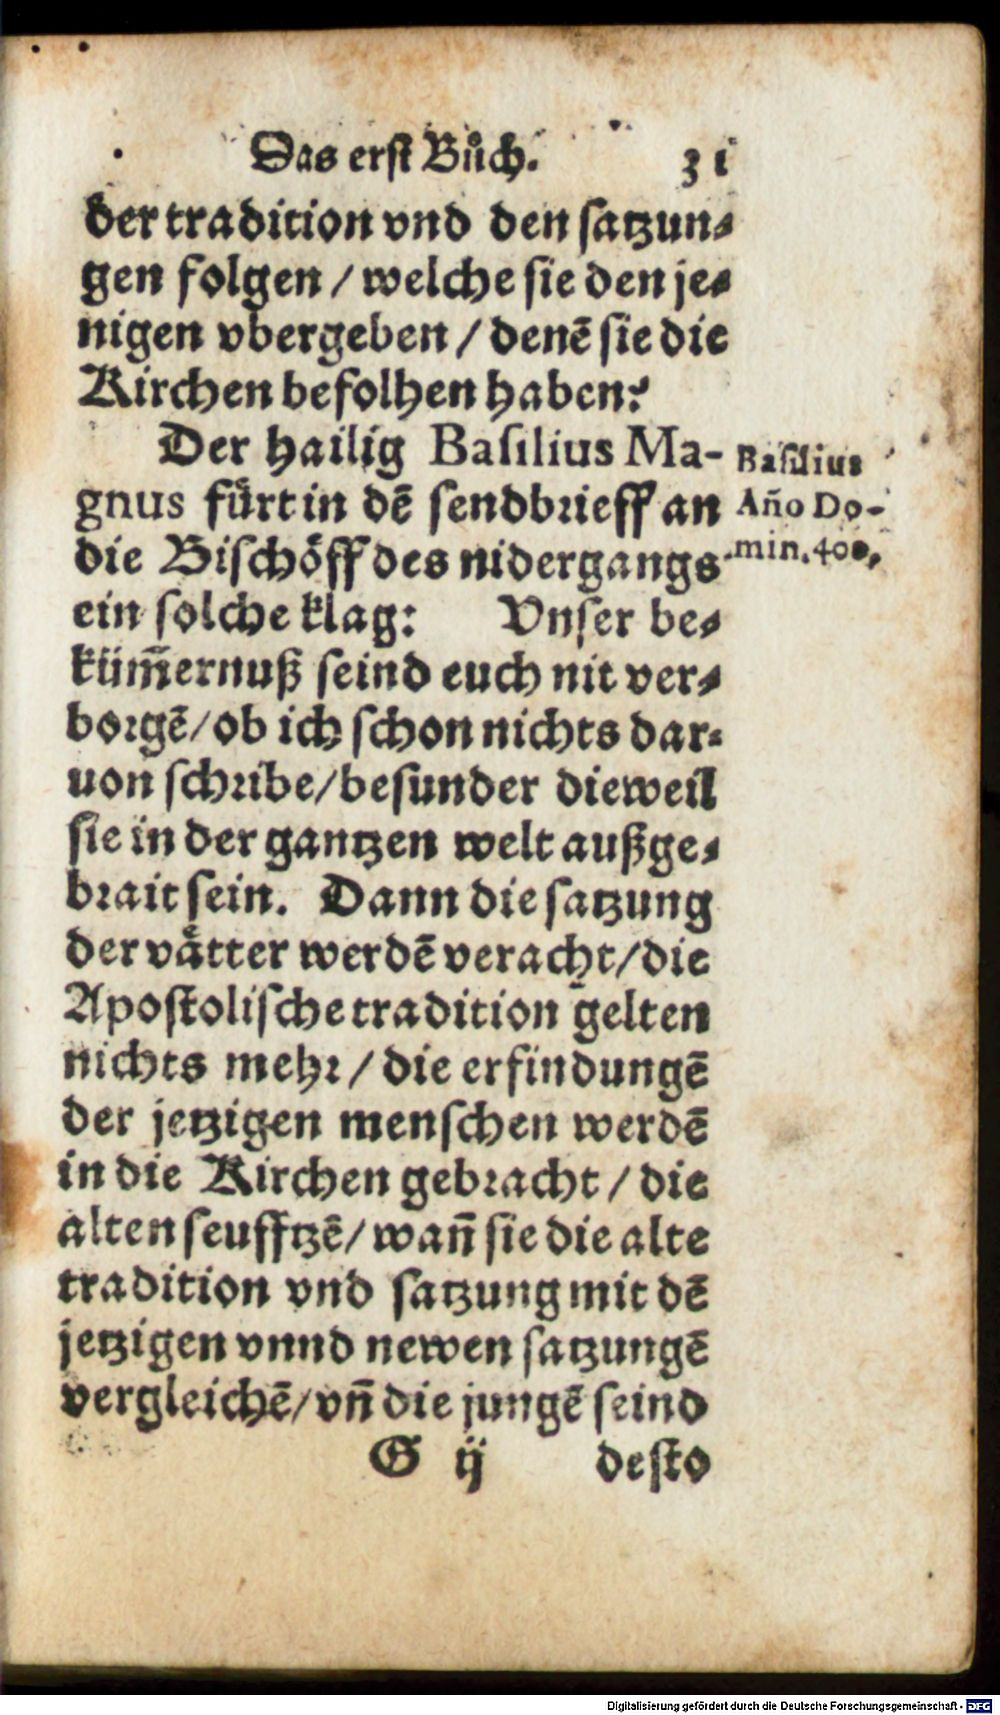 Das erst Bůch. 31
der tradition vnd den satzun⸗
gen folgen / welche sie den je⸗
nigen vbergeben / denē sie die
Kirchen befolhen haben?
Der hailig Basilius Ma-
gnus fürt in dē sendbrieff an
die Bischöff des nidergangs
ein solche klag: Vnser be⸗
küm̄ernuß seind euch nit ver⸗
borgē/ob ich schon nichts dar⸗
uon schribe/besunder dieweil
sie in der gantzen welt außge⸗
brait sein. Dann die satzung
der vätter werdē veracht/die
Apostolische tradition gelten
nichts mehr / die erfindungē
der jetzigen menschen werdē
in die Kirchen gebracht / die
alten seufftzē/ wañ sie die alte
tradition vnd satzung mit dē
jetzigen vnnd newen satzungē
vergleichē/vñ die jungē seind
G ij desto
Basilius
Año Do-
min.400.
Digitalisierung gefördert durch die Deutsche Forschungsgemeinschaft - DFG